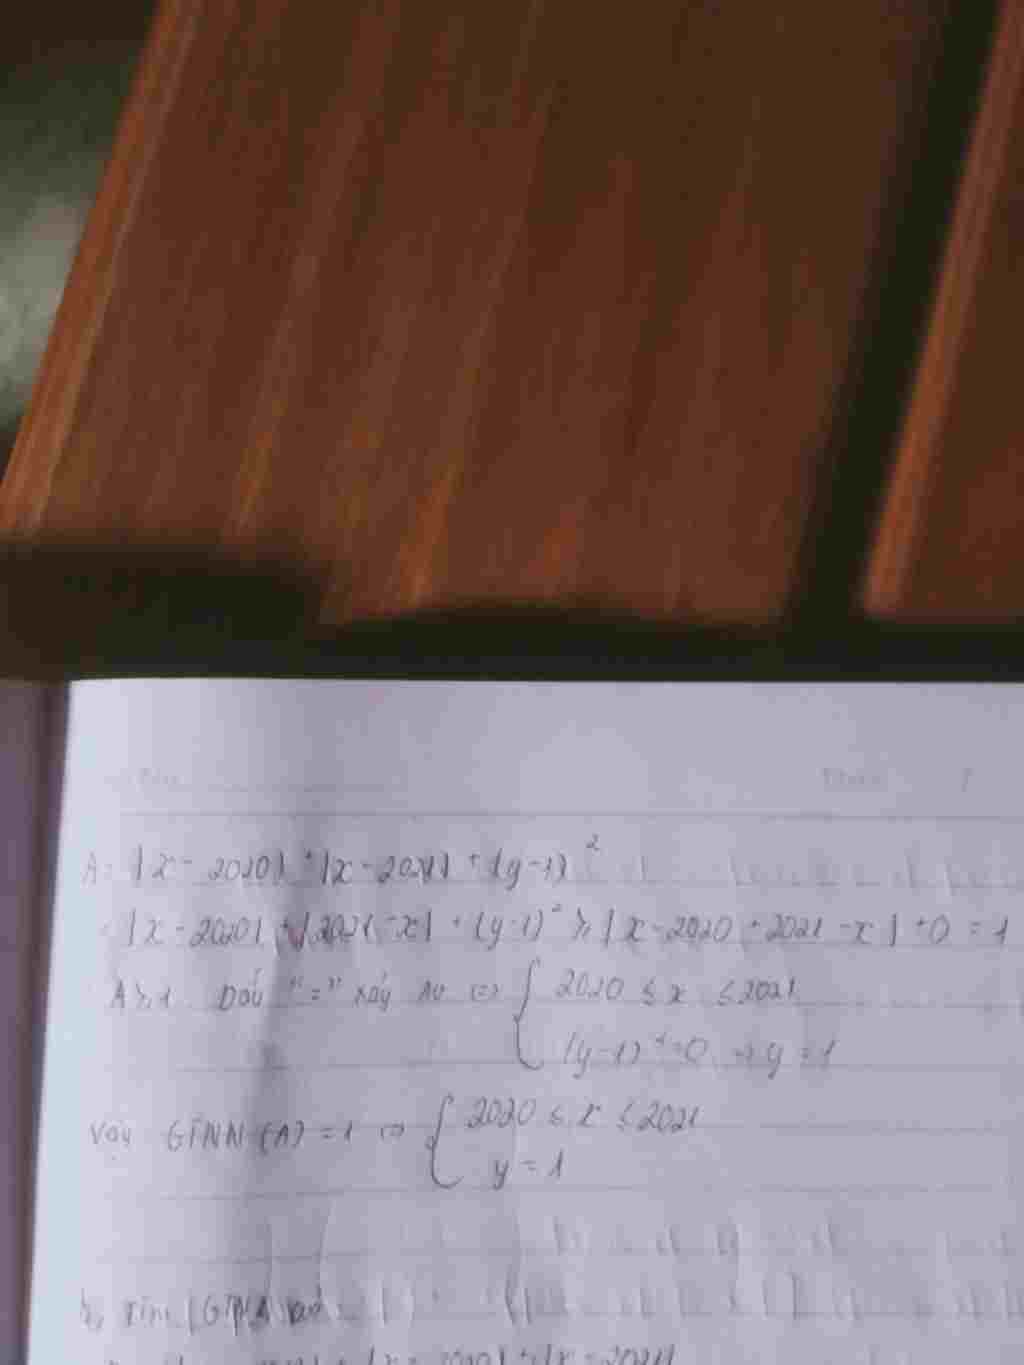 A = |x - 2020| + |x - 2021| + (y-1)²
= |x - 2020| + |2021 - x| + (y-1)² ≥ |x - 2020 + 2021 - x| + 0 = 1
A ≥ 1 Dấu "=" xảy ra <=> { 2020 ≤ x ≤ 2021
(y-1)²=0 => y = 1
Vậy GTNN (A) = 1 <=> { 2020 ≤ x ≤ 2021
y = 1
b, Tìm